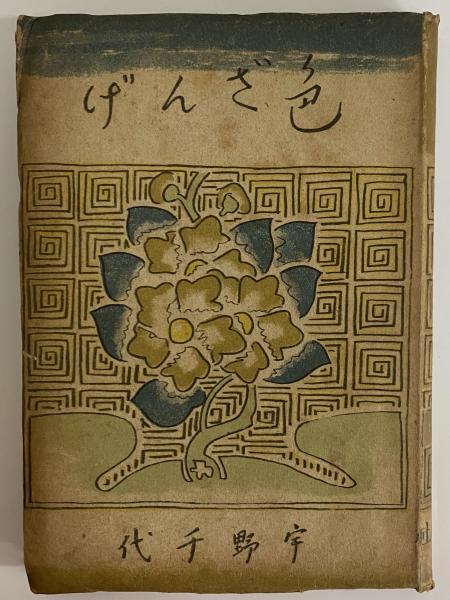 色ざんげ
宇野千代